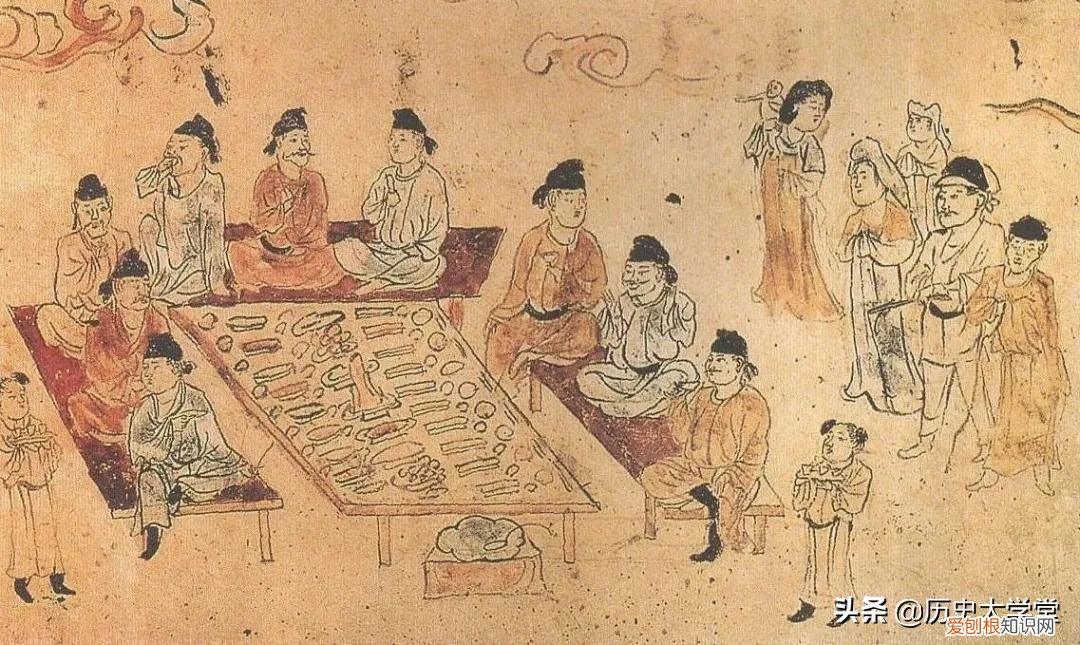 头条 @历史大学堂
爱刨根知识网